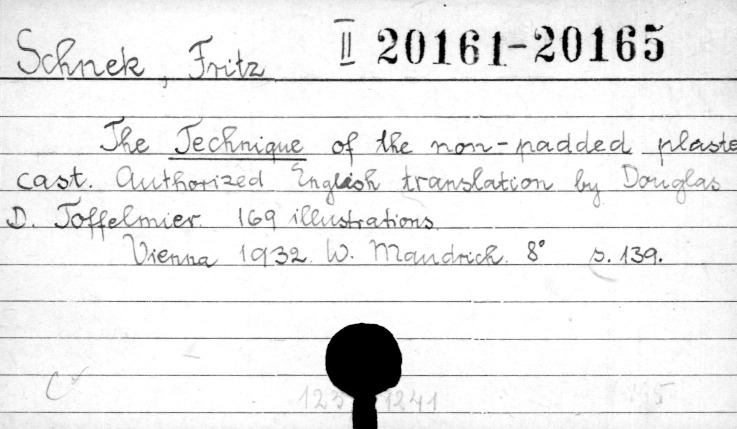 Schnek, Fritz II 20161-20165
The Technique of the non-padded plaste
cast. Authorized English translation by Douglas
D. Toffelmier. 169 illustrations.
Vienna 1932. W. Maudrich. 8° s. 139.